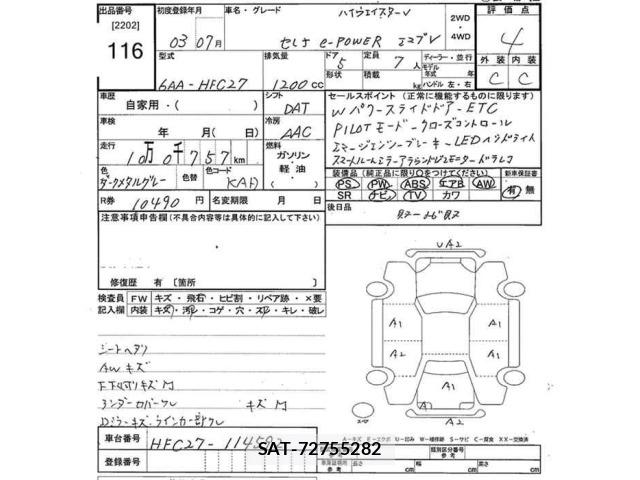 出品番号
[2202]
116
初度登録年月
03 07月
車名・グレード
ハイウェイスターV
セレナ e-POWER
2WD
・
4WD
評価点
4
外装 内装
C C
型式
6AA-HFC27
排気量
1200 cc
ドア 5
形状
定員 7 人
積載 kg
ディーラー・並行
モデル年式 年
ハンドル 左・右
車歴
自家用・( )
シフト
DAT
車検
年 月( 日)
冷房
AAC
走行
10万0千757km
燃料
ガソリン
・
軽油
・
( )
色
ダークメタルグレー
色替
色コード
KAD
R券 10490 円
名変期限 月 日
セールスポイント (正常に機能するものに限ります)
Wパワースライドドアー ETC
PILOTモード クローズコントロール
エマージェンシーブレーキ LEDヘッドライト
スマートルームミラー アラウンドビューモニター ドラレコ
装備品 (純正品に限り〇をつけてください)
PS PW ABS エアB AW
SR ナビ TV カワ
新車保証書
有 無
後日品
注意事項申告欄(不具合内容等は具体的に記入して下さい)
修復歴 有 [箇所 ]
検査員記入欄
FW キズ・飛石・ヒビ割・リペア跡・×要
内装 キズ・汚レ・コゲ・穴・スレ・キレ・破レ
シートヘタリ
AWキズ
キズM
UA2
A1
A2
A1
A1
A2
A1
A2
A・キズ E・エクボ U・凹み W・補修跡 S・サビ C・腐食 XX・交換済
車台番号 HFC27-114582
登録番号
SAT-72755282
参考
類別区分番号
参考
長さ cm
幅 cm
高さ cm